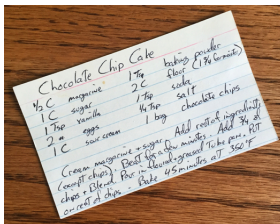 Chocolate Chip Cake
½ C margarine
1 C sugar
1 Tsp vanilla
2 eggs
1 C sour cream
1 Tsp baking powder
2 C flour (1¾
1 Tsp soda
¼ Tsp salt
1 bag chocolate chips
Cream margarine + sugar. Add rest of ingredients
(except chips). Beat for few minutes. Add ¾ of
chips + Blend. Pour in floured-greased Tube pan. Put
on rest of chips. Bake 45 minutes at 350°F